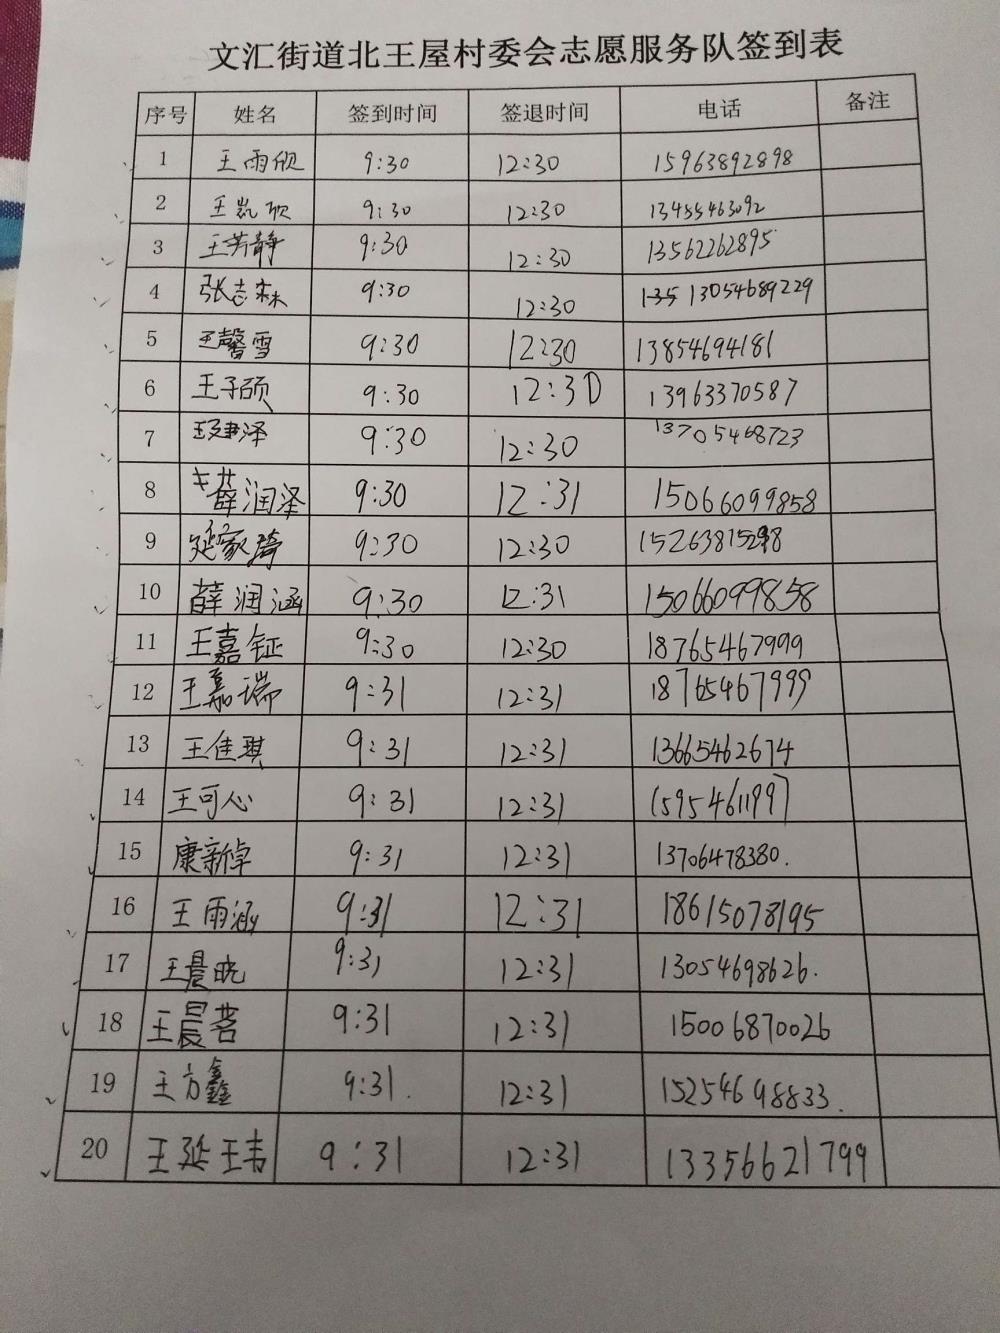 文汇街道北王屋村委会志愿服务队签到表
序号 姓名 签到时间 签退时间 电话 备注
1 王雨欣 9:30 12:30 15963892898
2 王凯欣 9:30 12:30 13455463092
3 王芳静 9:30 12:30 13562262895
4 张志森 9:30 12:30 13054689229
5 王馨雪 9:30 12:30 13854694181
6 王子硕 9:30 12:30 13963370587
7 9:30 12:30 13705468723
8 薛润泽 9:30 12:31 15066099858
9 延家琦 9:30 12:30
10 薛润涵 9:30 12:31 15066099858
11 王嘉钲 9:30 12:30 18765467999
12 王嘉瑞 9:31 12:31 18765467999
13 王佳琪 9:31 12:31 13665462674
14 王可心 9:31 12:31 15954611997
15 康新倬 9:31 12:31 13706478380.
16 王雨涵 9:31 12:31 18615078195
17 王晨晓 9:31 12:31 13054698626.
18 王晨茗 9:31 12:31 15006870026
19 王方鑫 9:31. 12:31 15254698833.
20 王延玮 9:31 12:31 13356621799